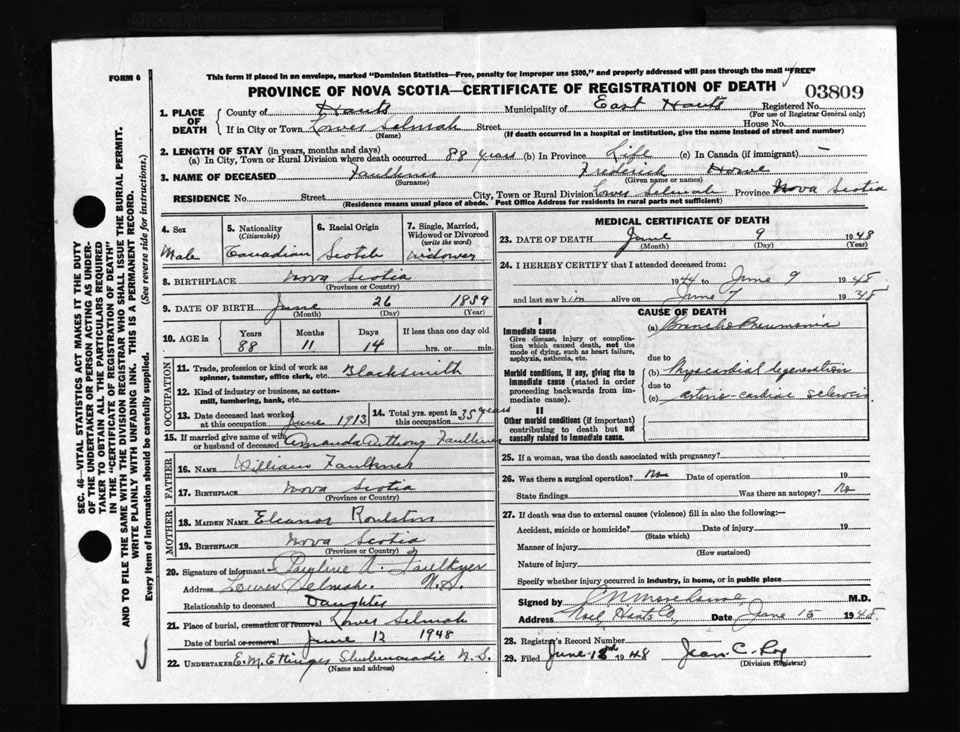 FORM 6
This form if placed in an envelope, marked "Dominion Statistics—Free, penalty for improper use $300," and properly addressed will pass through the mail "FREE"
PROVINCE OF NOVA SCOTIA—CERTIFICATE OF REGISTRATION OF DEATH
03809
1. PLACE OF DEATH
County of Hants Municipality of East Hants Registered No.
(For use of Registrar General only)
If in City or Town Lower Selmah Street House No.
(Name) (If death occurred in a hospital or institution, give the name instead of street and number)
2. LENGTH OF STAY (in years, months and days)
(a) In City, Town or Rural Division where death occurred 88 years (b) In Province Life (c) In Canada (if immigrant) —
3. NAME OF DECEASED Faulkner Frederick Howe
(Surname) (Given name or names)
RESIDENCE No. Street City, Town or Rural Division Lower Selmah Province Nova Scotia
(Residence means usual place of abode. Post Office Address for residents in rural parts not sufficient)
4. Sex
Male
5. Nationality
(Citizenship)
Canadian
6. Racial Origin
Scotch
7. Single, Married, Widowed or Divorced
(write the word)
Widower
8. BIRTHPLACE Nova Scotia
(Province or Country)
9. DATE OF BIRTH June 26 1859
(Month) (Day) (Year)
10. AGE in
Years Months Days If less than one day old
88 11 14 hrs. or min.
OCCUPATION
11. Trade, profession or kind of work as Blacksmith
spinner, teamster, office clerk, etc.
12. Kind of industry or business, as cotton-
mill, lumbering, bank, etc.
13. Date deceased last worked
at this occupation June 1913
14. Total yrs. spent in 35 years
this occupation
15. If married give name of wife
or husband of deceased Amanda Anthony Faulkner
FATHER
16. NAME William Faulkner
17. BIRTHPLACE Nova Scotia
(Province or Country)
MOTHER
18. MAIDEN NAME Eleanor Roulston
19. BIRTHPLACE Nova Scotia
(Province or Country)
20. Signature of informant Pauline A. Faulkner
Address Lower Selmah. N.S.
Relationship to deceased Daughter
21. Place of burial, cremation or removal Lower Selmah
Date of burial or removal June 12 1948
22. UNDERTAKER E.M. Ettinger Shubenacadie N.S.
(Name and address)
MEDICAL CERTIFICATE OF DEATH
23. DATE OF DEATH June 9 1948
(Month) (Day) (Year)
24. I HEREBY CERTIFY that I attended deceased from:
1944 to June 9 1948
and last saw him alive on June 9 1948
CAUSE OF DEATH
I
Immediate cause
Give disease, injury or complication which caused death, not the mode of dying, such as heart failure, asphyxia, asthenia, etc.
(a) Broncho Pneumonia
due to
Morbid conditions, if any, giving rise to immediate cause (stated in order proceeding backwards from immediate cause).
(b) Myocardial degeneration
due to
(c) arterio-cardiac sclerosis
II
Other morbid conditions (if important) contributing to death but not causally related to immediate cause.
25. If a woman, was the death associated with pregnancy?
26. Was there a surgical operation? No Date of operation 19
State findings Was there an autopsy? No
27. If death was due to external causes (violence) fill in also the following:—
Accident, suicide or homicide? Date of injury 19
(State which)
Manner of injury
(How sustained)
Nature of injury
Specify whether injury occurred in industry, in home, or in public place
Signed by M.D.
Address Noel, Hants Co, Date June 15 1948
28. Registrar's Record Number
29. Filed June 1948 Jean C. Roy
(Division Registrar)
SEC. 46—VITAL STATISTICS ACT MAKES IT THE DUTY
OF THE UNDERTAKER OR PERSON ACTING AS UNDER-
TAKER TO OBTAIN ALL THE PARTICULARS REQUIRED
IN THE "CERTIFICATE OF REGISTRATION OF DEATH"
AND TO FILE THE SAME WITH THE DIVISION REGISTRAR WHO SHALL ISSUE THE BURIAL PERMIT.
WRITE PLAINLY WITH UNFADING INK. THIS IS A PERMANENT RECORD.
Every item of information should be carefully supplied. (See reverse side for instructions.)